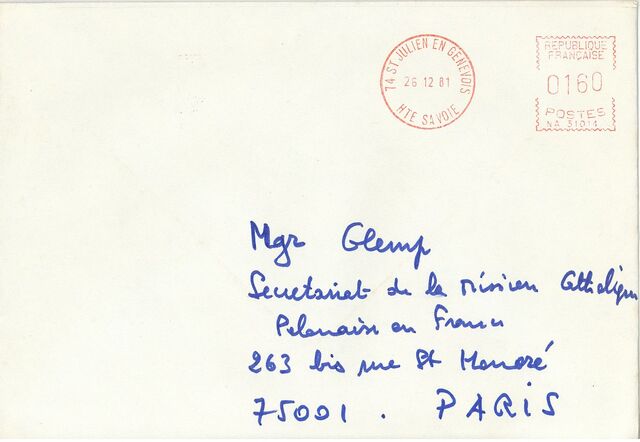 74 ST JULIEN EN GENEVOIS
26 12 81
HTE SAVOIE
REPUBLIQUE
FRANÇAISE
0160
POSTES
NA 31014
Mgr Glemp
Secretariat de la Mission Catholique
Polonaise en France
263 bis rue St Honoré
75001 . PARIS